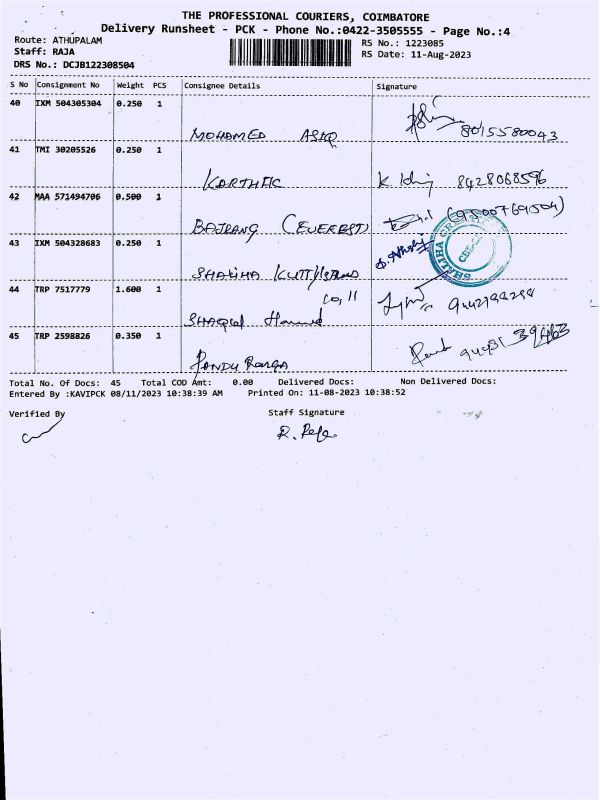 THE PROFESSIONAL COURIERS, COIMBATORE
Delivery Runsheet - PCK - Phone No.:0422-3505555 - Page No.:4
Route: ATHUPALAM
RS No.: 1223085
Staff: RAJA
RS Date: 11-Aug-2023
DRS No.: DCJB122308504
S No Consignment No Weight PCS Consignee Details Signature
40 IXM 504305304 0.250 1
MOHAMED ASIQ 8015580043
41 TMI 30205526 0.250 1
KARTHIC 8428068596
42 MAA 571494706 0.500 1
BAJRANG (EVEREST) (9500769504)
43 IXM 504328683 0.250 1
SHALIHA
44 TRP 7517779 1.600 1
SHAQUL Hameed
45 TRP 2598826 0.350 1
PANDU Ranga
Total No. Of Docs: 45 Total COD Amt: 0.00 Delivered Docs: Non Delivered Docs:
Entered By :KAVIPCK 08/11/2023 10:38:39 AM Printed On: 11-08-2023 10:38:52
Verified By Staff Signature